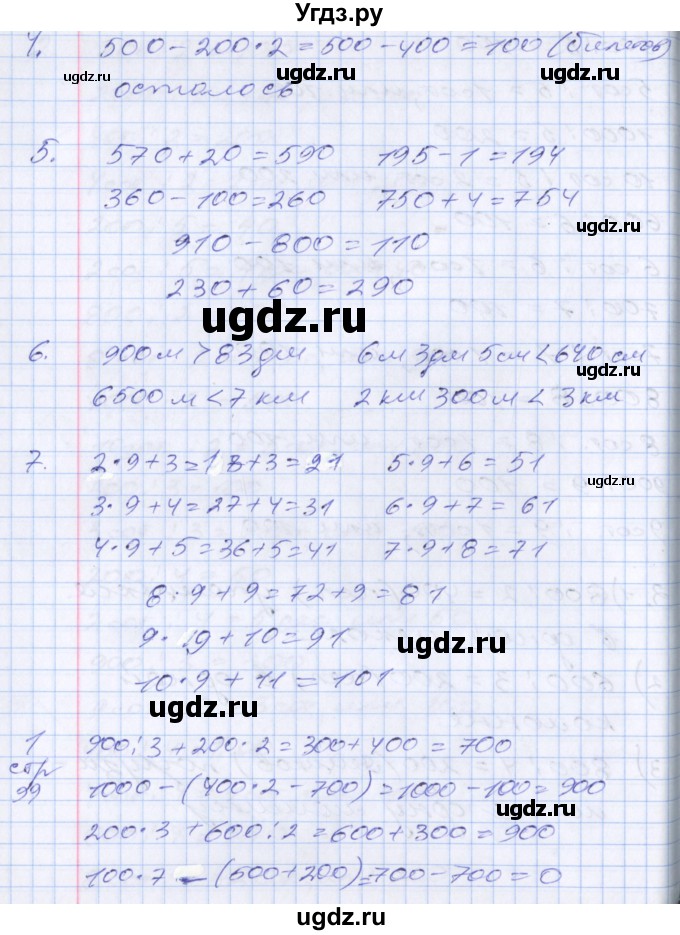 Угдз.ру
4. 500 - 200·2 = 500 - 400 = 100 (билетов)
осталось
5. 570 + 20 = 590 195 - 1 = 194
360 - 100 = 260 750 + 4 = 754
910 - 800 = 110
230 + 60 = 290
6. 900 м > 83 дм 6 м 3 дм 5 см < 640 см
6500 м < 7 км 2 км 300 м < 3 км
7. 2·9 + 3 = 18 + 3 = 21 5·9 + 6 = 51
3·9 + 4 = 27 + 4 = 31 6·9 + 7 = 61
4·9 + 5 = 36 + 5 = 41 7·9 + 8 = 71
8·9 + 9 = 72 + 9 = 81
9·9 + 10 = 91
10·9 + 11 = 101
1 900:3 + 200·2 = 300 + 400 = 700
стр 99 1000 - (400·2 - 700) = 1000 - 100 = 900
200·3 + 600:2 = 600 + 300 = 900
100·7 - (500 + 200) = 700 - 700 = 0
ugdz.ru
ugdz.ru
ugdz.ru
ugdz.ru
ugdz.ru
ugdz.ru
ugdz.ru
ugdz.ru
ugdz.ru
ugdz.ru
ugdz.ru
ugdz.ru
ugdz.ru